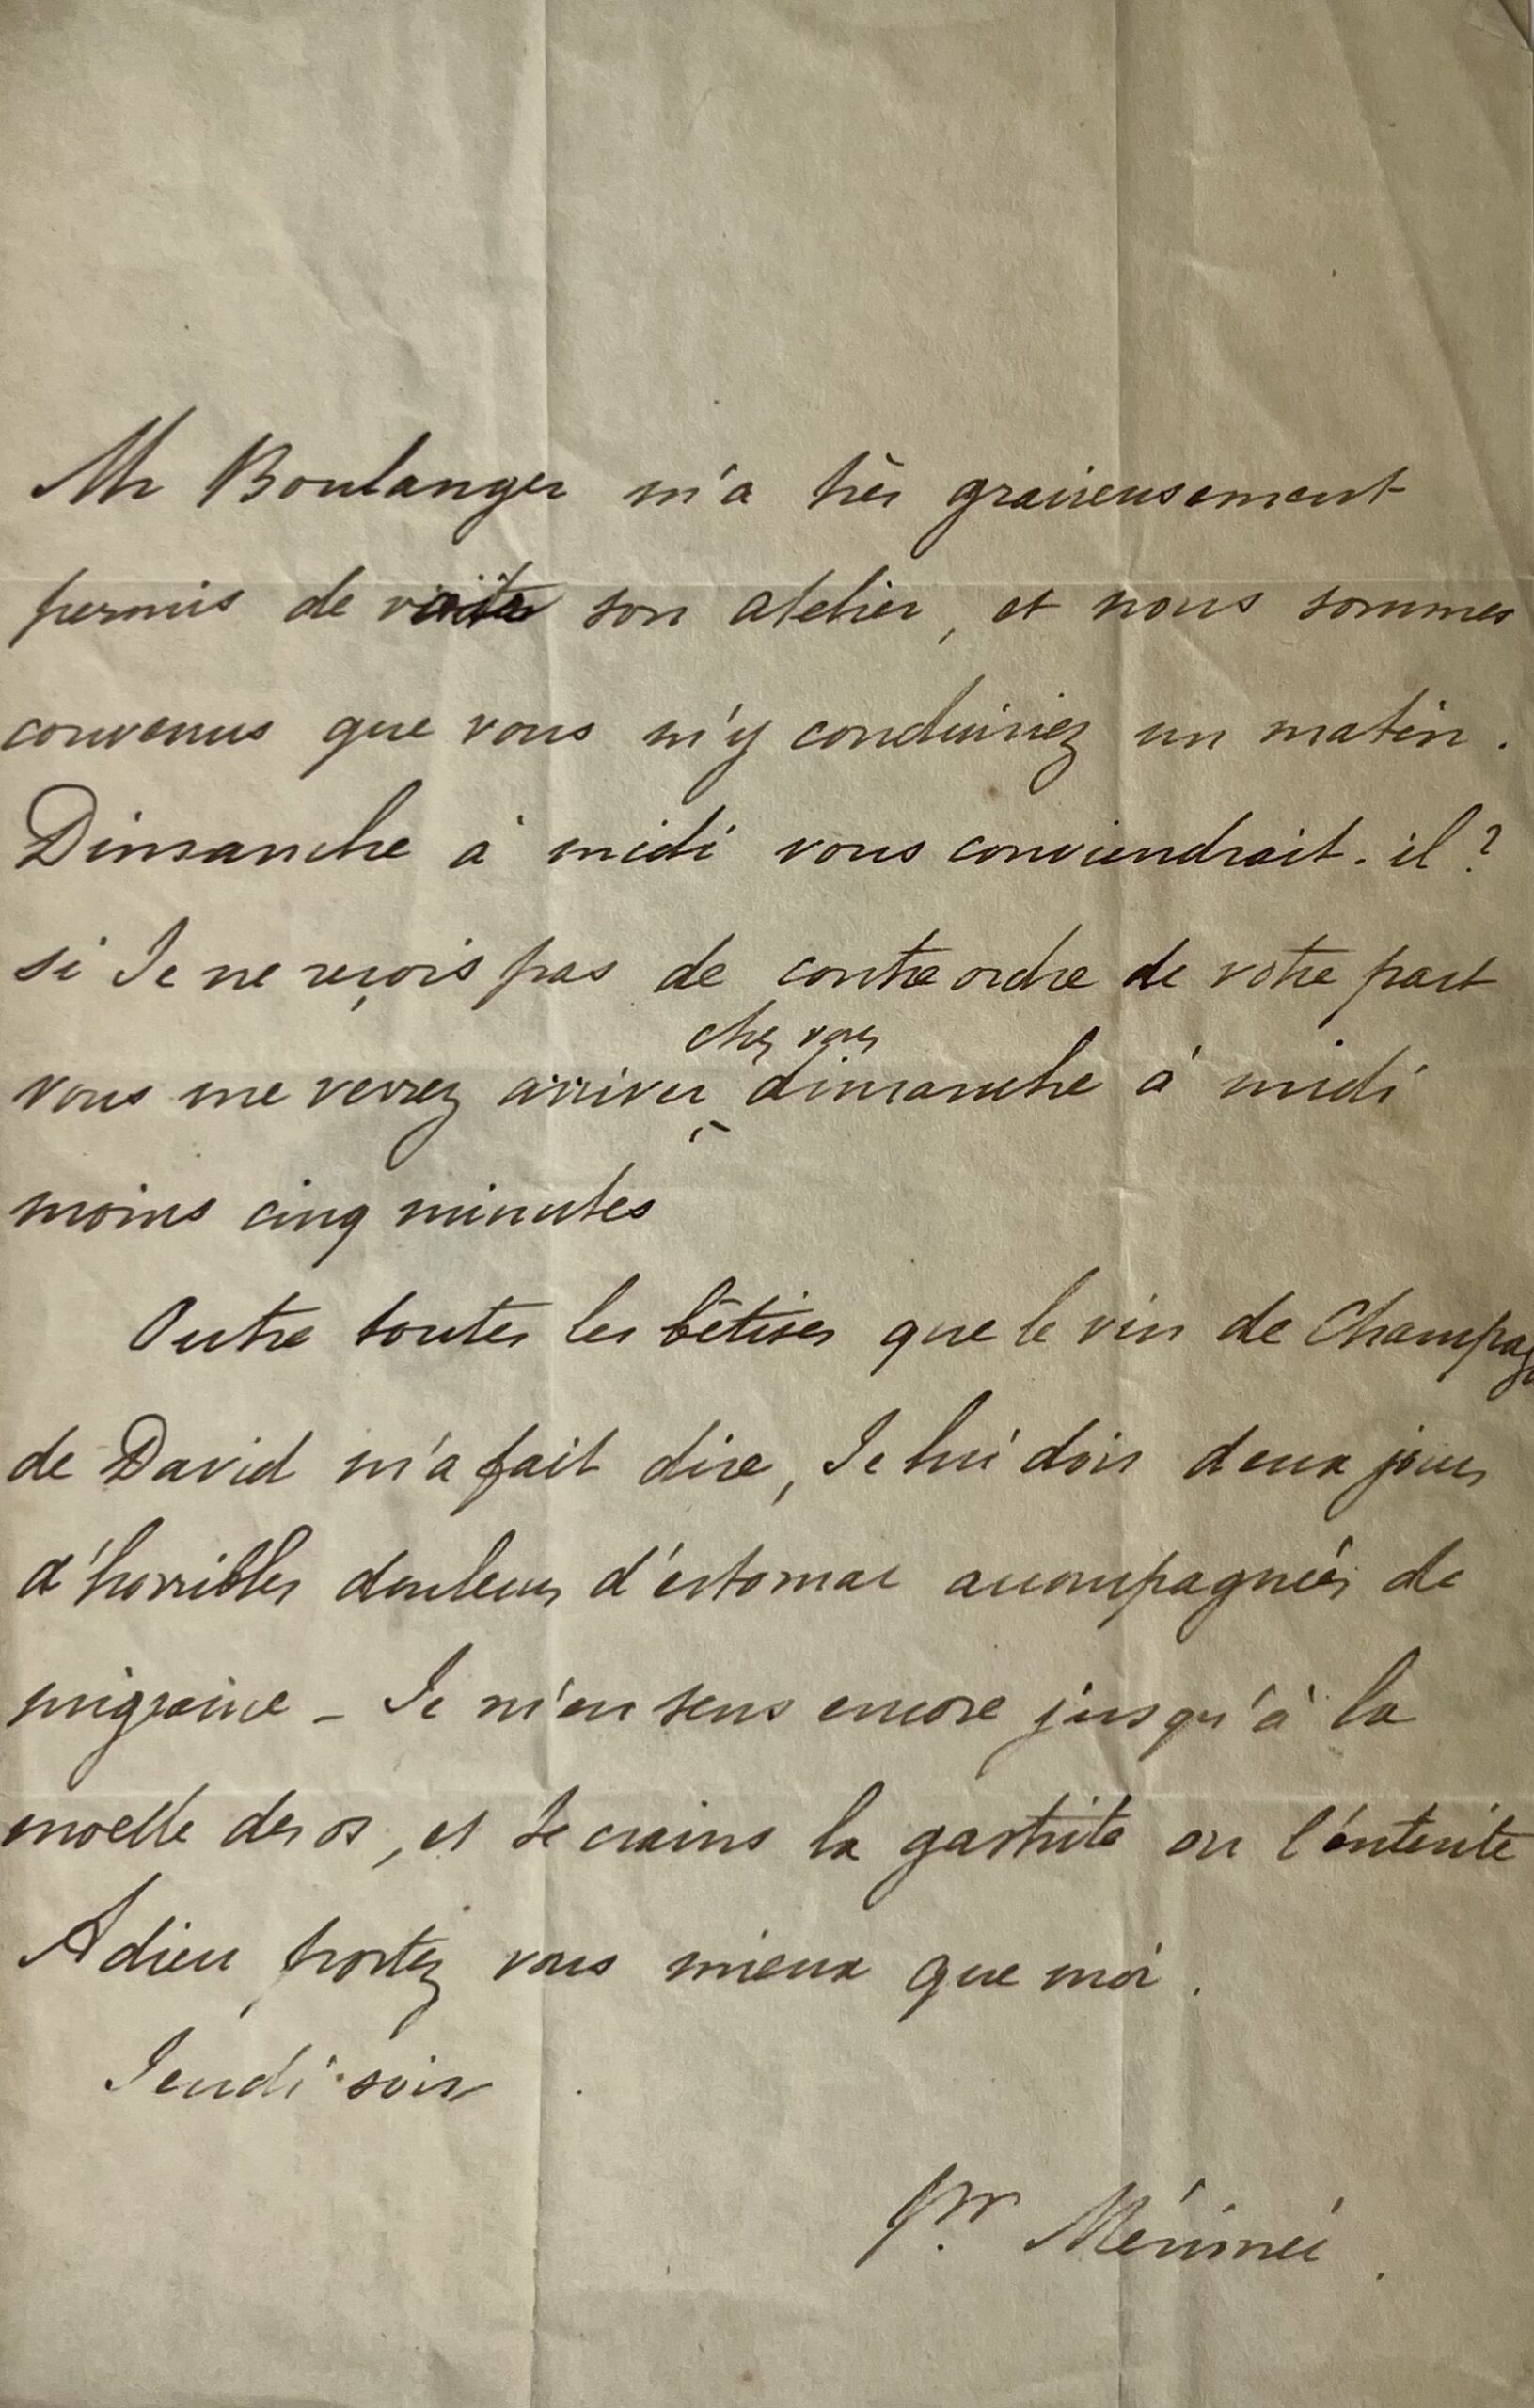 Mr Boulanger m'a très gracieusement
permis de son atelier, et nous sommes
convenus que vous m'y conduiriez un matin.
Dimanche à midi vous conviendrait-il ?
si Je ne reçois pas de contre ordre de votre part
chez vous
vous me verrez arriver dimanche à midi
moins cinq minutes
Outre toutes les bêtises que le vin de Champag
de David m'a fait dire, Je lui dois deux jours
d'horribles douleurs d'estomac accompagnées de
migraine - Je m'en sens encore jusqu'à la
moelle des os, et Je crains la gastrite ou l'entérite
Adieu portez vous mieux que moi.
Jeudi soir
Pr. Mérimée.